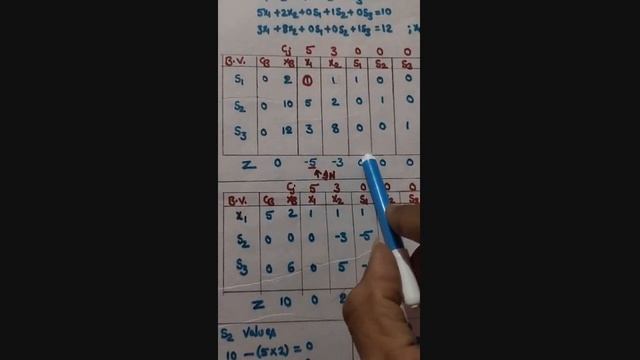 5x₁+2x₂+0S₁+1S₂+0S₃=10
3x₁+8x₂+0S₁+0S₂+1S₃=12 ;
Cj 5 3 0 0 0
B.V. CB XB x₁ x₂ S₁ S₂ S₃
S₁ 0 2 1 1 1 0 0
S₂ 0 10 5 2 0 1 0
S₃ 0 12 3 8 0 0 1
Z 0 -5 -3 0 0 0
↑
Cj 5 3 0 0 0
B.V. CB XB x₁ x₂ S₁
x₁ 5 2 1 1 1
S₂ 0 0 0 -3 -5
S₃ 0 6 0 5
Z 10 0 2
S₂ values
10 - (5×2) = 0